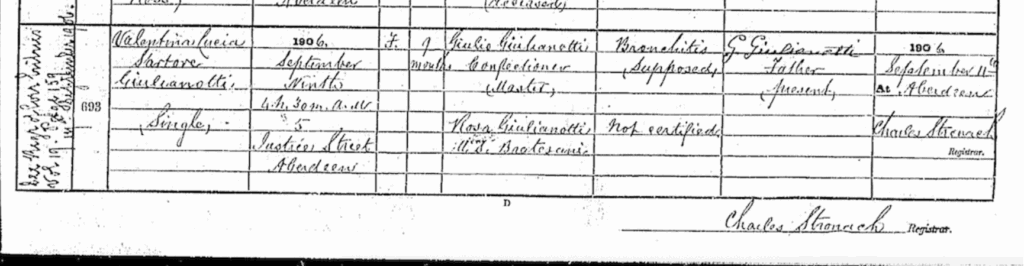 (deceased)
Valentina Lucia
Sartore
Giulianotti
Single,
693
1906.
September
Ninth
4.h.30m.a.m
5
Justice Street
Aberdeen
F.
9
months
Giulio Giulianotti
Confectioner
(Master)
Rosa Giulianotti
M.S.
Bronchitis
Supposed,
Not certified,
G Giulianotti
Father
present,
1906.
September 11th
At Aberdeen
Charles Stronach
Registrar.
D
Charles Stronach Registrar.